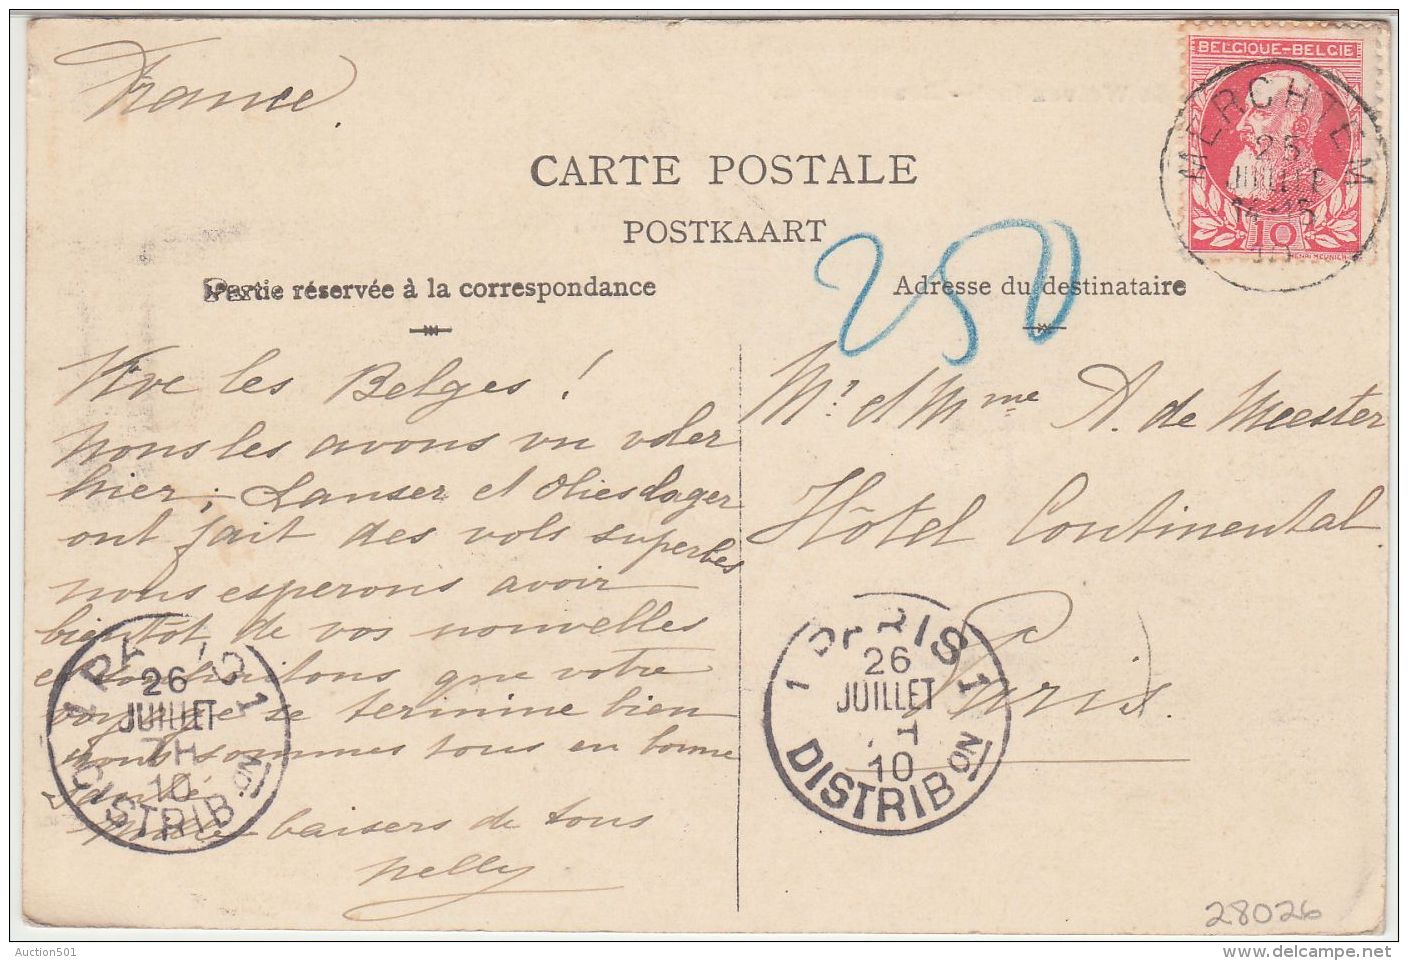 France.
BELGIQUE-BELGIE
MERCHTEM
25
JUILLE
14-15
10
10
HENRI MEUNIER
CARTE POSTALE
POSTKAART
Partie réservée à la correspondance
Adresse du destinataire
250
Vive les Belges !
nous les avons vu voler
hier; Lanser et Oliesdager
ont fait des vols superbes
nous esperons avoir
bientôt de vos nouvelles
et souhaitons que votre
voyage se termine bien
nous sommes tous en bonne
santé
baisers de tous
Nelly
Mr. et Mme A. de Meester
Hôtel Continental
Paris.
1 PARIS 1
26
JUILLET
7H
10
DISTRIBON
1 PARIS 1
26
JUILLET
10
DISTRIBON
28026
Auction501
www.delcampe.net